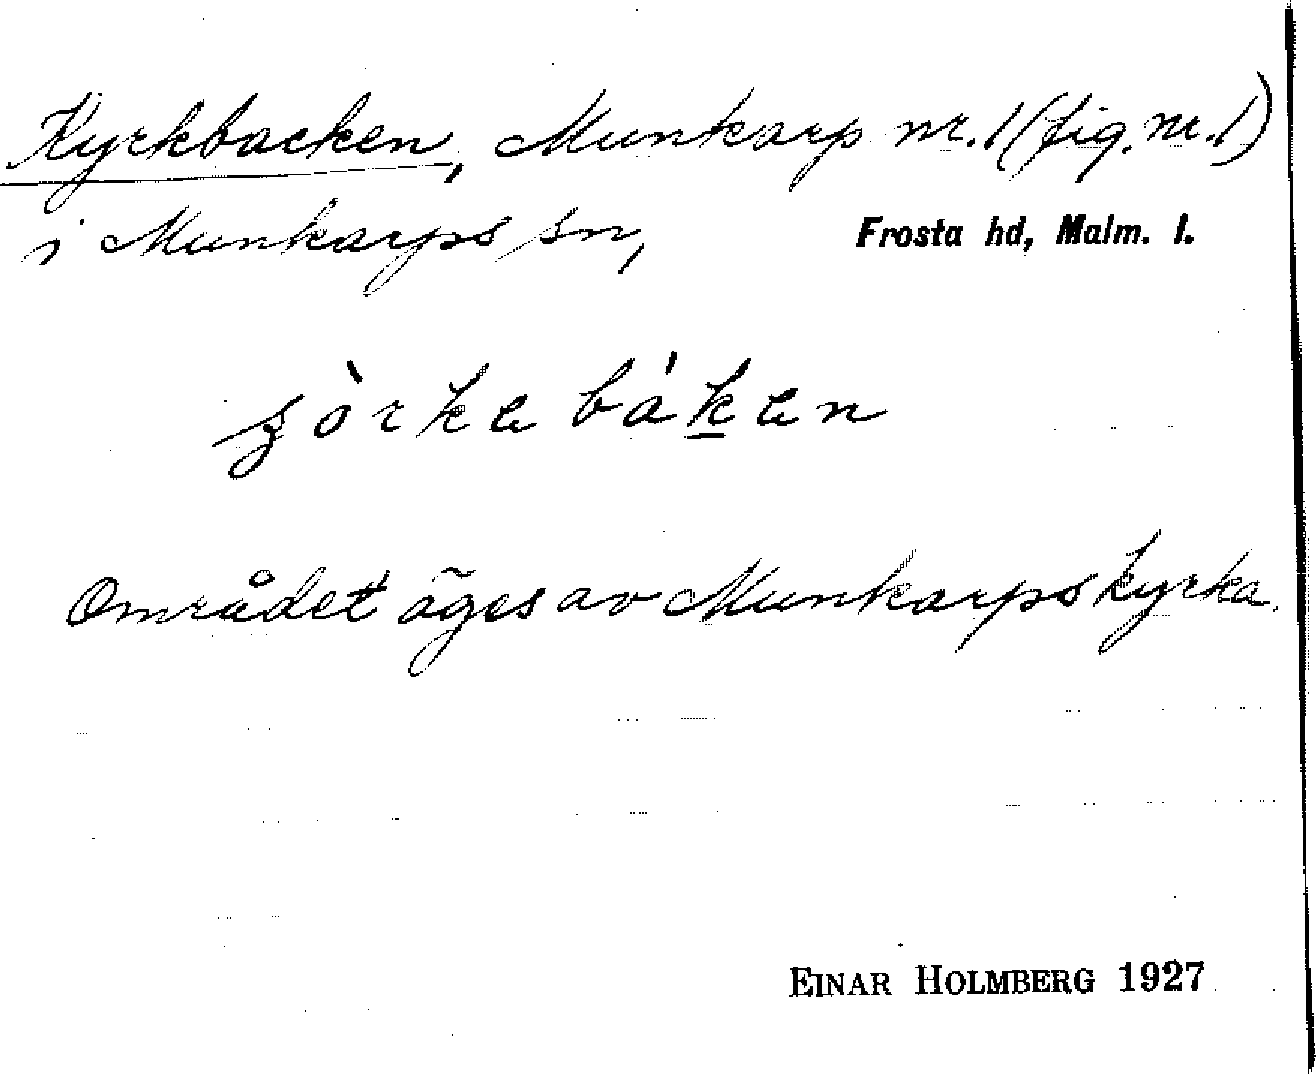 Kyrkbacken, Munkarp nr. 1 (fig. nr. 1)
i Munkarps sn, Frosta hd, Malm. l.
Området äges av Munkarps kyrka.
EINAR HOLMBERG 1927